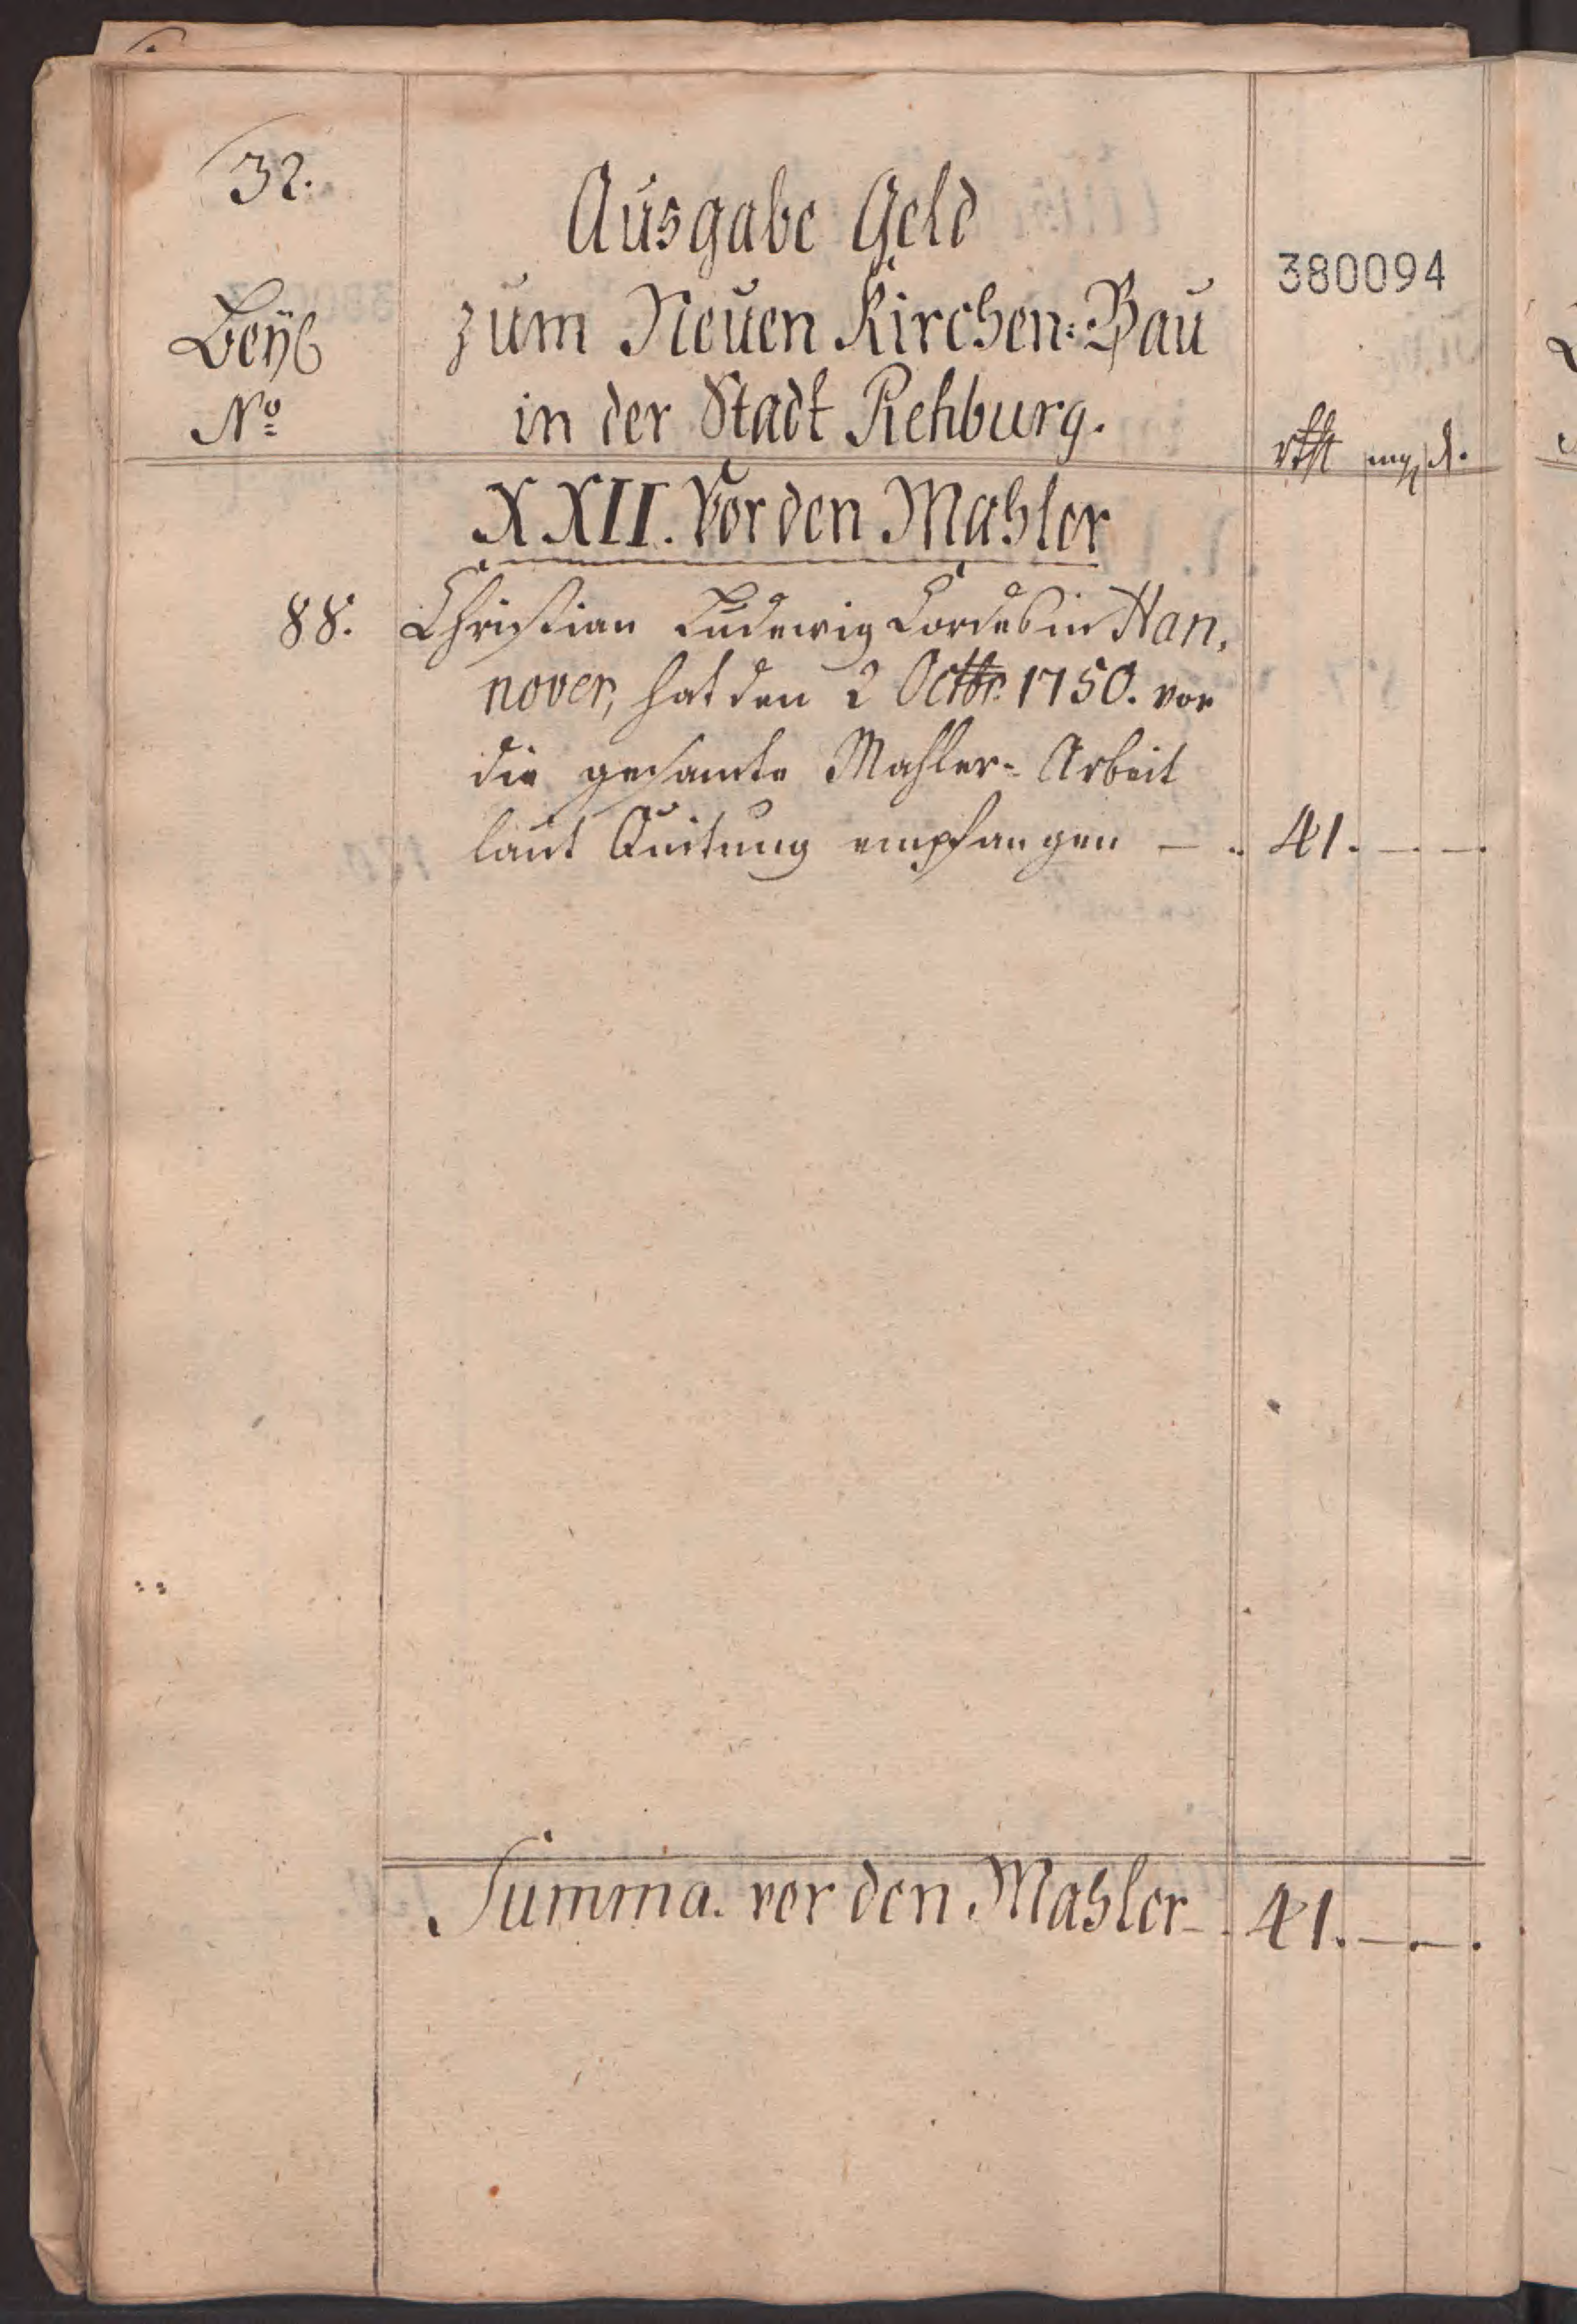 32.
Ausgabe Geld
380094
Beyl
zum Neuen Kirchen-Bau
No
in der Stadt Rehburg.
rthlr mg d.
XXII. Vor den Mahler
88. Christian Ludewig Cordes in Han,
nover, hat den 2 Octbr. 1750. vor
die gesamte Mahler-Arbeit
laut Quitung empfangen — . 41. —. —.
Summa. vor den Mahler - . 41. —. —.